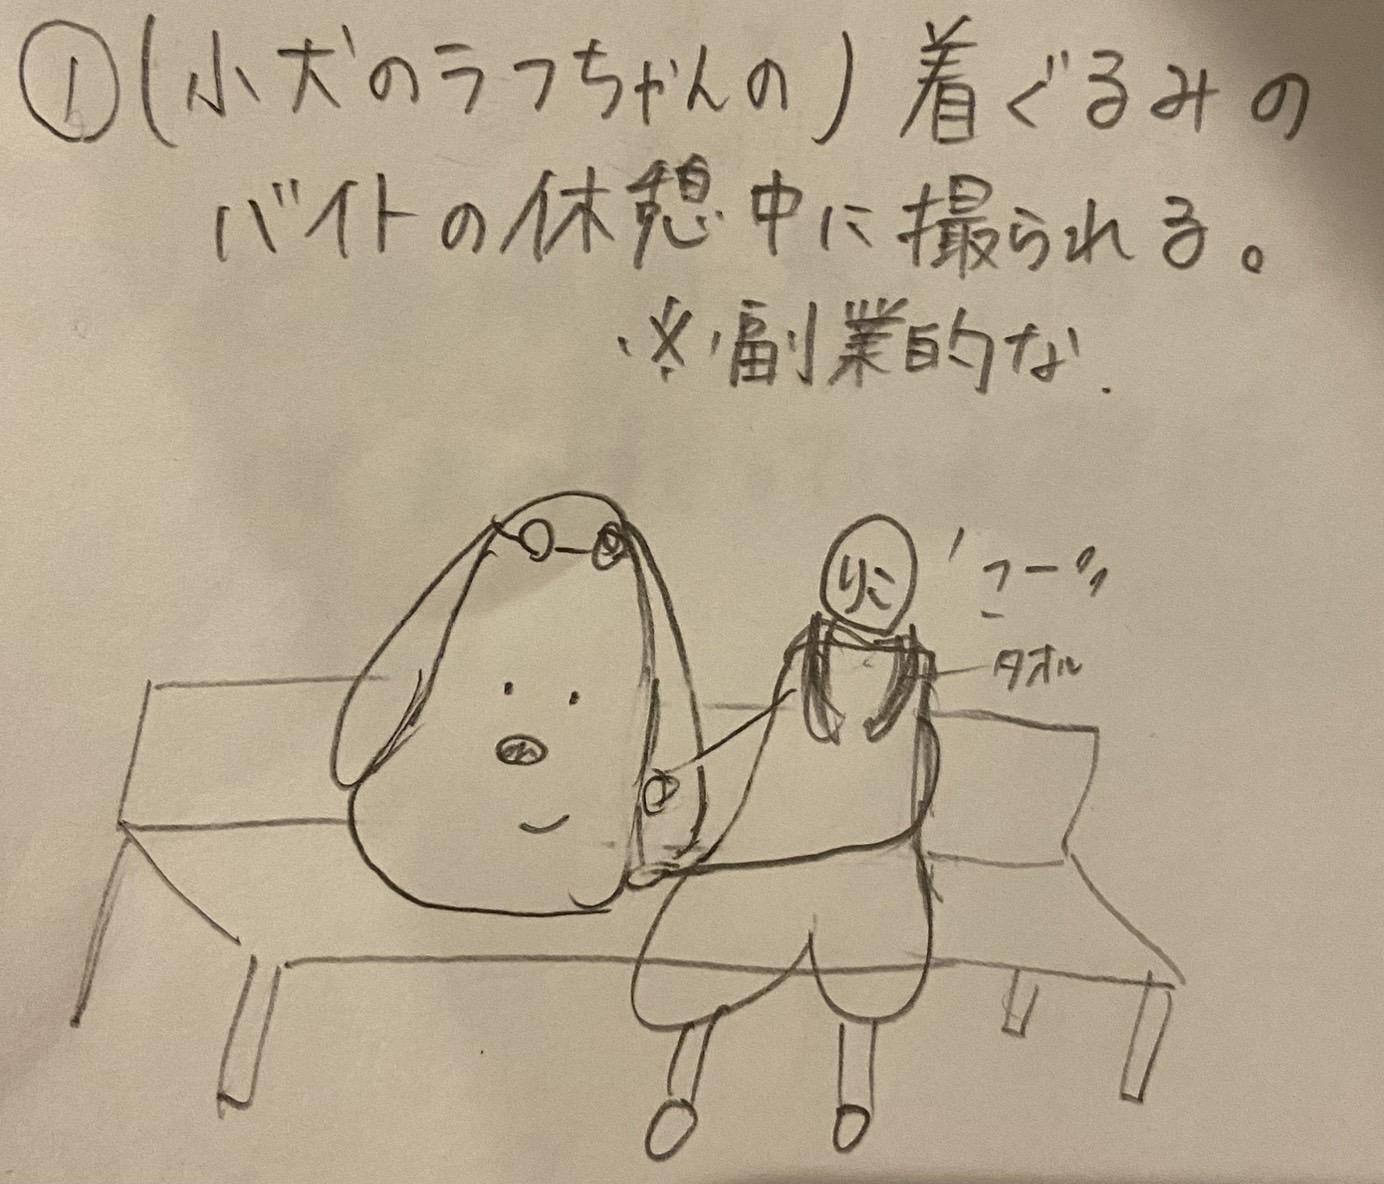 ①(小犬のラフちゃんの)着ぐるみの
バイトの休憩中に撮られる。
※副業的な
りこ
タオル